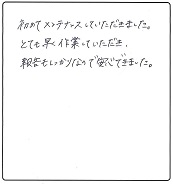 初めてメンテナンスしていただきました。
とても早く作業していただき、
報告もしっかりなので安心できました。